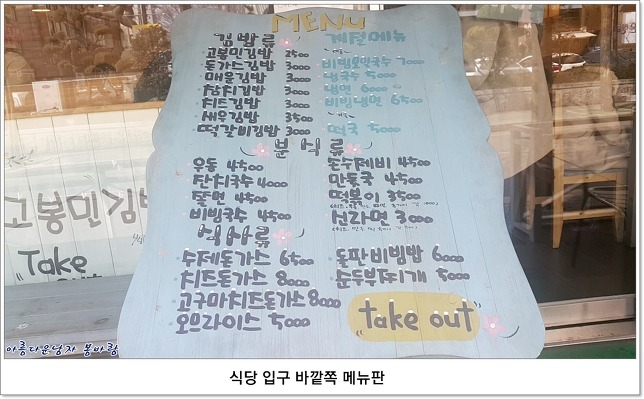 MENU
김밥류
고봉민김밥 2500
돈가스김밥 3000
매운김밥 3000
참치김밥 3000
치즈김밥 3000
새우김밥 3500
떡갈비김밥 3000
계절메뉴
비빔모밀국수 7000
냉국수 5000
냉면 6000
비빔냉면 6500
떡국 5000
분식류
우동 4500
잔치국수 4000
쫄면 4500
비빔국수 4500
손수제비 4500
만둣국 4500
떡볶이 3500
신라면 3000
식사류
수제돈가스 6500
치즈돈가스 8000
고구마치즈돈가스 8000
오므라이스 5000
돌판비빔밥 6000
순두부찌개 5000
take out
고봉민김밥
Take
아름다운남자 봉바람
식당 입구 바깥쪽 메뉴판